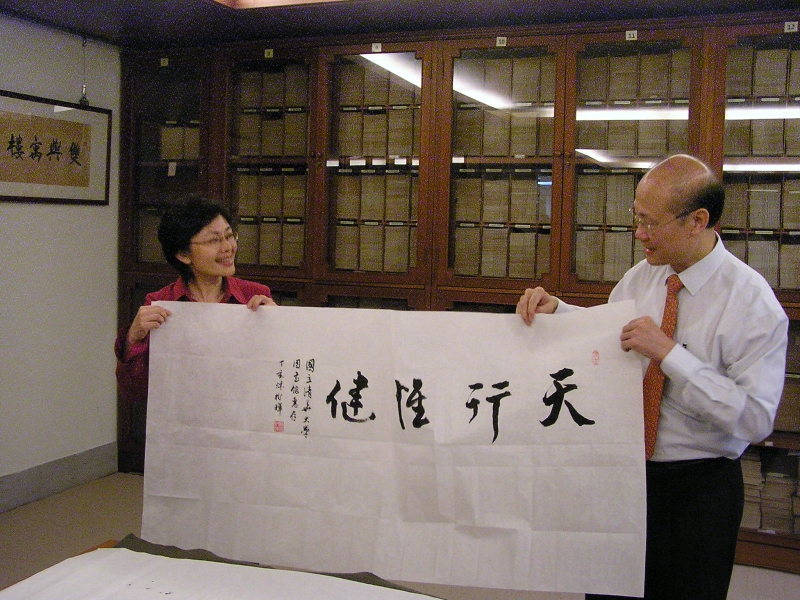 雙與寓樓
8
9
10
11
12
天行惟健
國立清華大學
圖書館惠存
丁亥